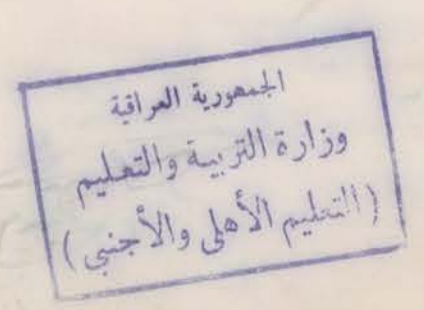 الجمهورية العراقية
وزارة التربية والتعليم
(التعليم الأهلى والأجنبى)